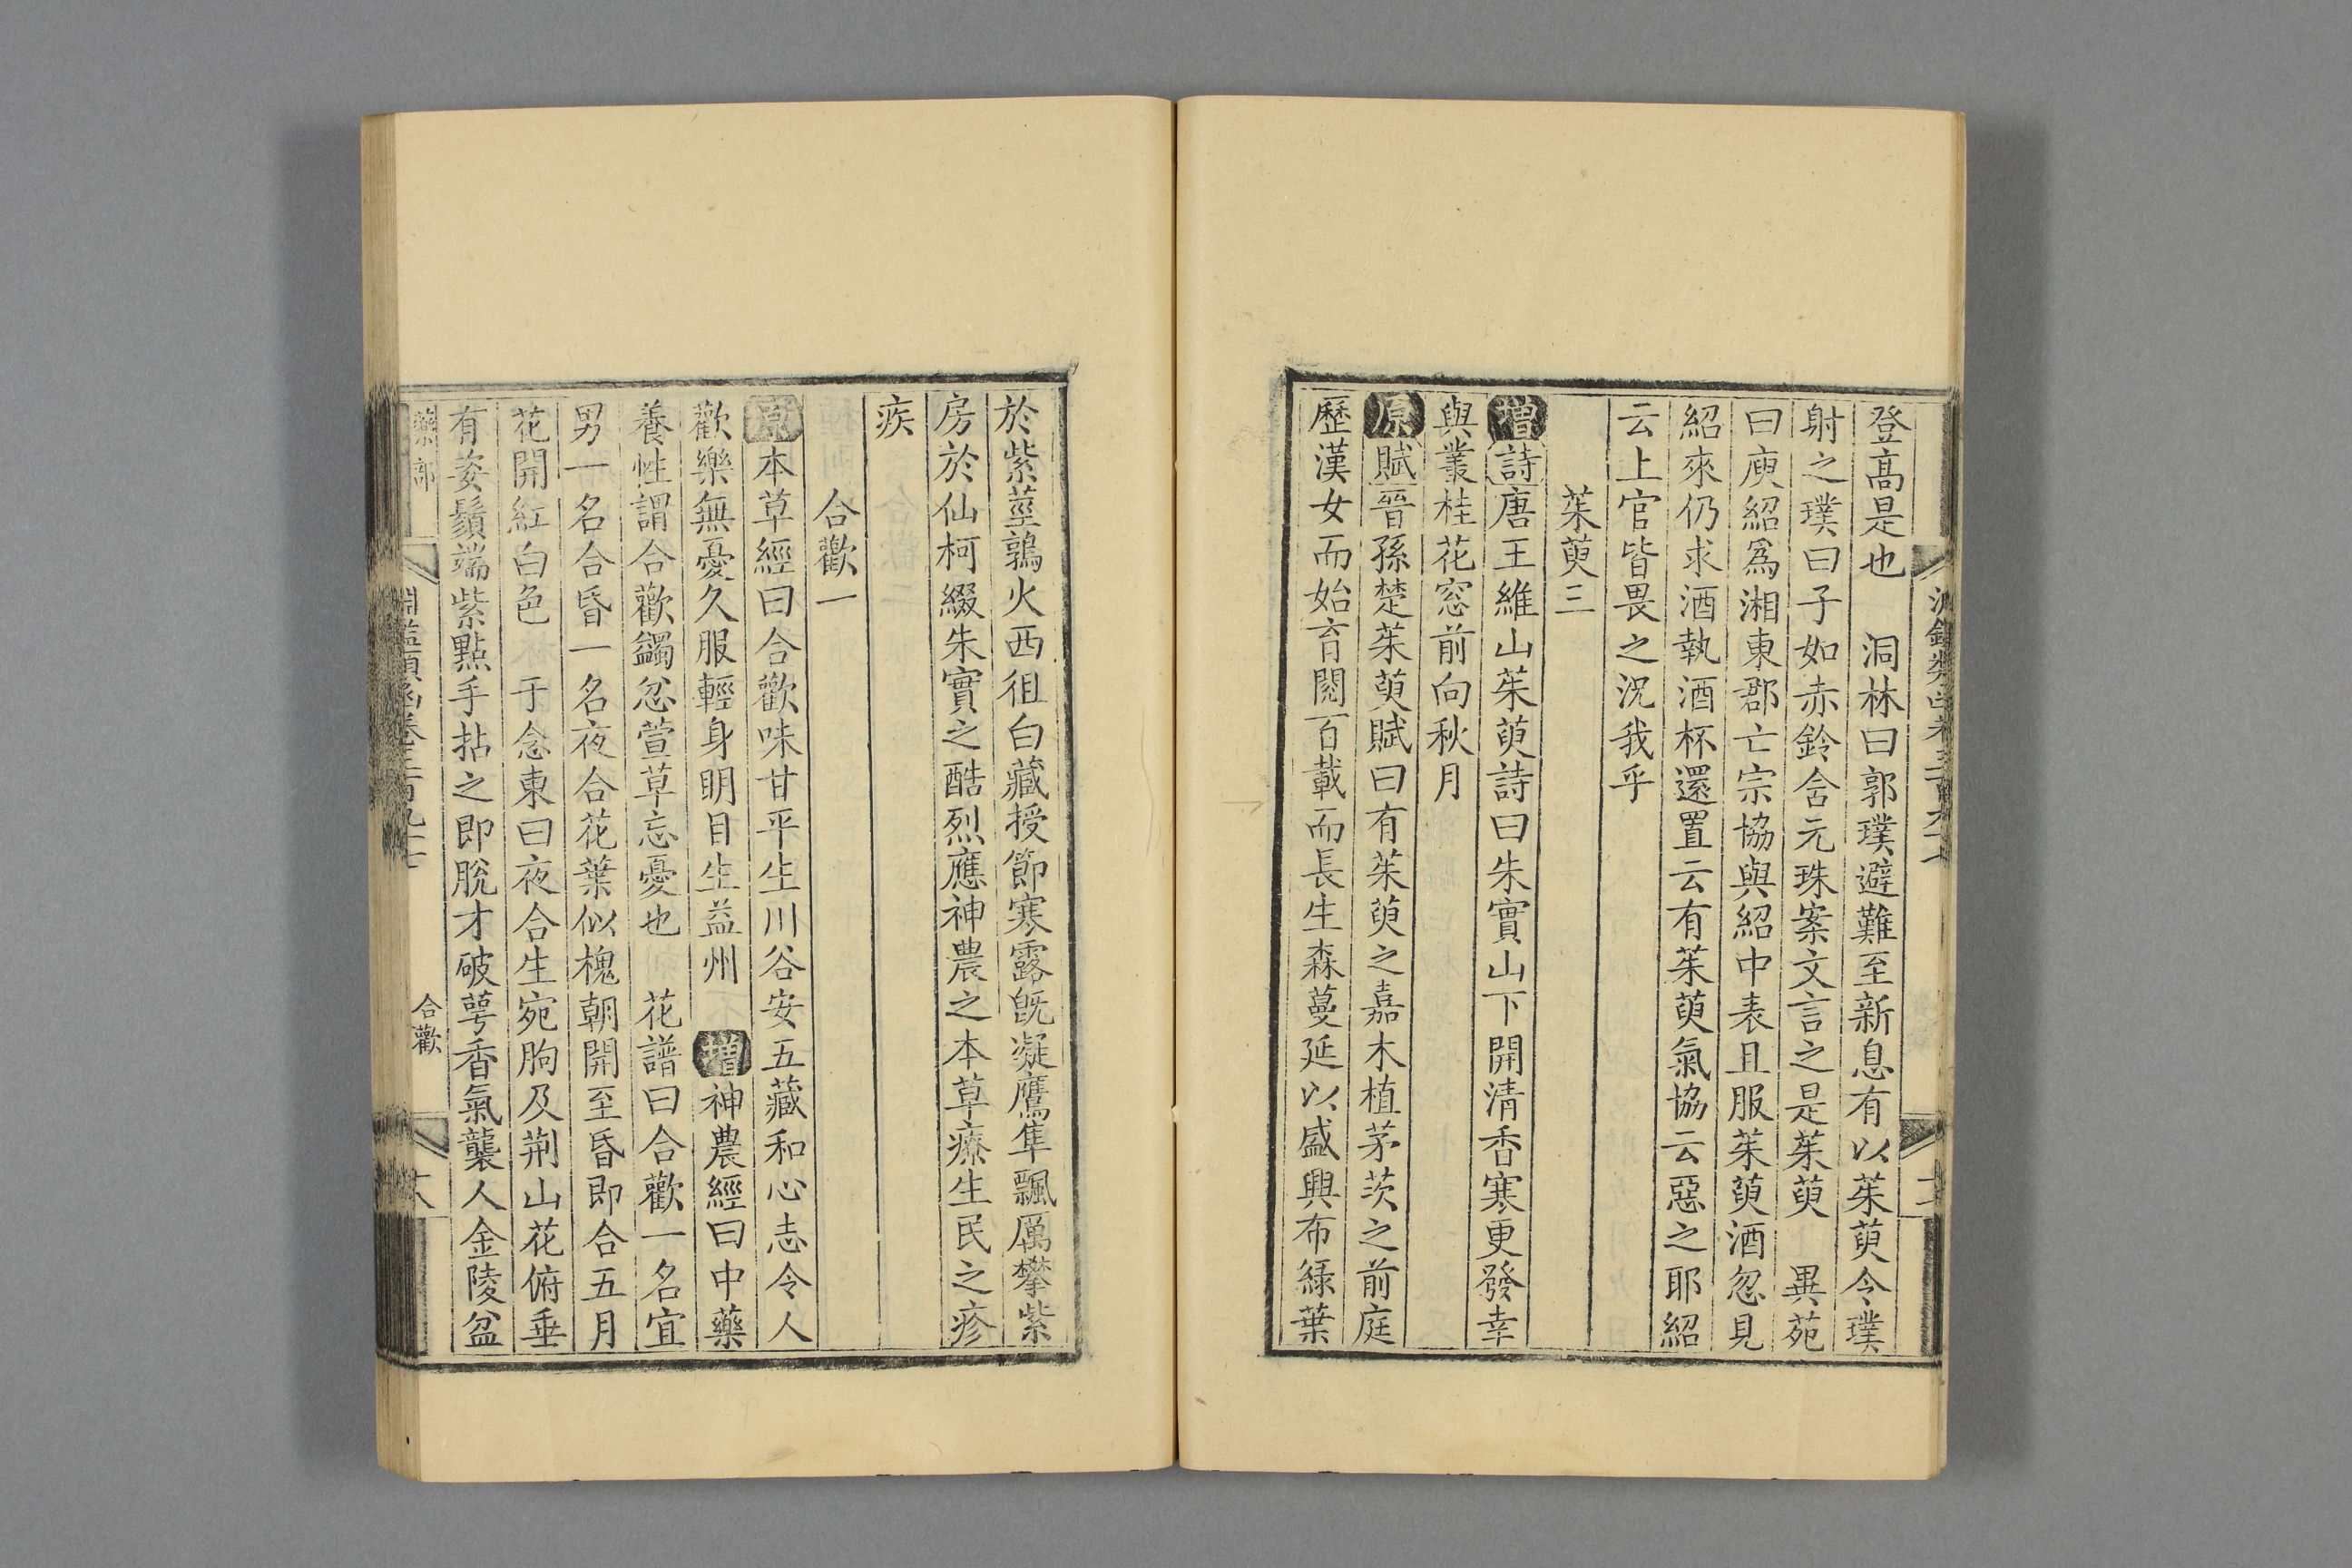 登高是也　洞林曰郭璞避難至新息有以茱萸令璞
射之璞曰子如赤鈴含元珠案文言之是茱萸　異苑
曰庾紹爲湘東郡亡宗協與紹中表且服茱萸酒忽見
紹來仍求酒執酒杯還置云有茱萸氣協云惡之耶紹
云上官皆畏之況我乎
茱萸三
增詩唐王維山茱萸詩曰朱實山下開清香寒更發幸
與叢桂花窓前向秋月
原賦晉孫楚茱萸賦曰有茱萸之嘉木植茅茨之前庭
歷漢女而始育閱百載而長生森蔓延以盛興布綠葉
於紫莖鶉火西徂白藏授節寒露旣凝鷹隼飄厲攀紫
房於仙柯綴朱實之酷烈應神農之本草療生民之疹
疾
合歡一
原本草經曰合歡味甘平生川谷安五藏和心志令人
歡樂無憂久服輕身明目生益州　增神農經曰中藥
養性謂合歡蠲忿萱草忘憂也　花譜曰合歡一名宜
男一名合昏一名夜合花葉似槐朝開至昏即合五月
花開紅白色　于念東曰夜合生宛朐及荆山花俯垂
有姿鬚端紫點手拈之即脫才破萼香氣襲人金陵盆
藥部
淵鑑類函卷三百九十七
合歡
十八